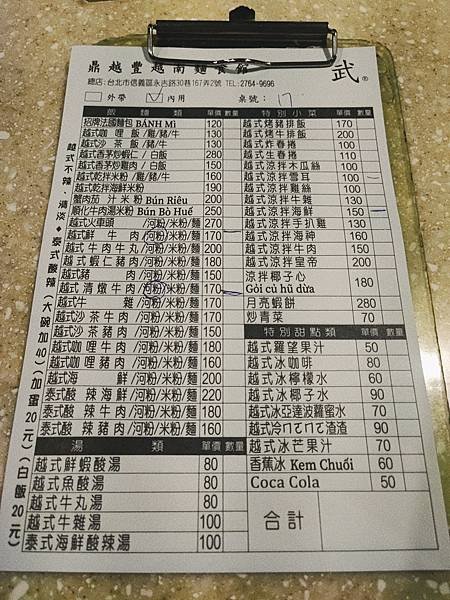 鼎越豐越南麵食館
武®
總店:台北市信義區永吉路30巷167弄29號 TEL:2764-9696
外帶 內用 桌號: 17
越式不辣、清淡◆泰式酸辣(大碗加40)(加蛋20元)(白飯20元)
飯麵類 單價 數量
招牌法國麵包 BÁNH Mì 120
越式咖哩飯/雞/豬/牛 130
越式沙茶飯/豬/牛 130
越式香茅炒蝦仁/白飯 280
越式香茅炒雞肉/白飯 150
越式乾拌米粉/雞/豬/牛 160
越式乾拌海鮮米粉 190
蟹肉茄汁米粉 Bún Riêu 200
順化牛肉湯米粉 Bún Bò Huế 250
越式火車頭/河粉/米粉/麵 270
越式鮮牛肉/河粉/米粉/麵 170
越式牛肉牛丸/河粉/米粉/麵 200
越式蝦仁豬肉/河粉/米粉/麵 180
越式豬肉/河粉/米粉/麵 150
越式清燉牛肉/河粉/米粉/麵 170
越式牛雜/河粉/米粉/麵 170
越式沙茶牛肉/河粉/米粉/麵 170
越式沙茶豬肉/河粉/米粉/麵 150
越式咖哩牛肉/河粉/米粉/麵 180
越式咖哩豬肉/河粉/米粉/麵 160
越式海鮮/河粉/米粉/麵 200
泰式酸辣海鮮/河粉/米粉/麵 220
泰式酸辣牛肉/河粉/米粉/麵 180
泰式酸辣豬肉/河粉/米粉/麵 160
湯類 單價 數量
越式鮮蝦酸湯 80
越式魚酸湯 80
越式牛丸湯 80
越式牛雜湯 100
泰式海鮮酸辣湯 100
特別小菜 單價 數量
越式烤豬排飯 170
越式烤牛排飯 200
越式炸春捲 100
越式生春捲 110
越式涼拌木瓜絲 100
越式涼拌雪耳 100
越式涼拌雞絲 100
越式涼拌牛雜 130
越式涼拌海鮮 150
越式涼拌手扒雞 130
越式涼拌海神 160
越式涼拌牛肉 150
越式涼拌皇帝 200
涼拌椰子心
Gỏi củ hũ dừa 180
月亮蝦餅 280
炒青菜 70
特別甜點類 單價 數量
越式羅望果汁 50
越式冰咖啡 80
越式冰檸檬水 60
越式冰椰子水 90
越式冰亞達波蘿蜜水 70
越式冷ㄇㄈㄇㄈ渣渣 90
越式冰芒果汁 70
香蕉冰 Kem Chuối 60
Coca Cola 50
合計